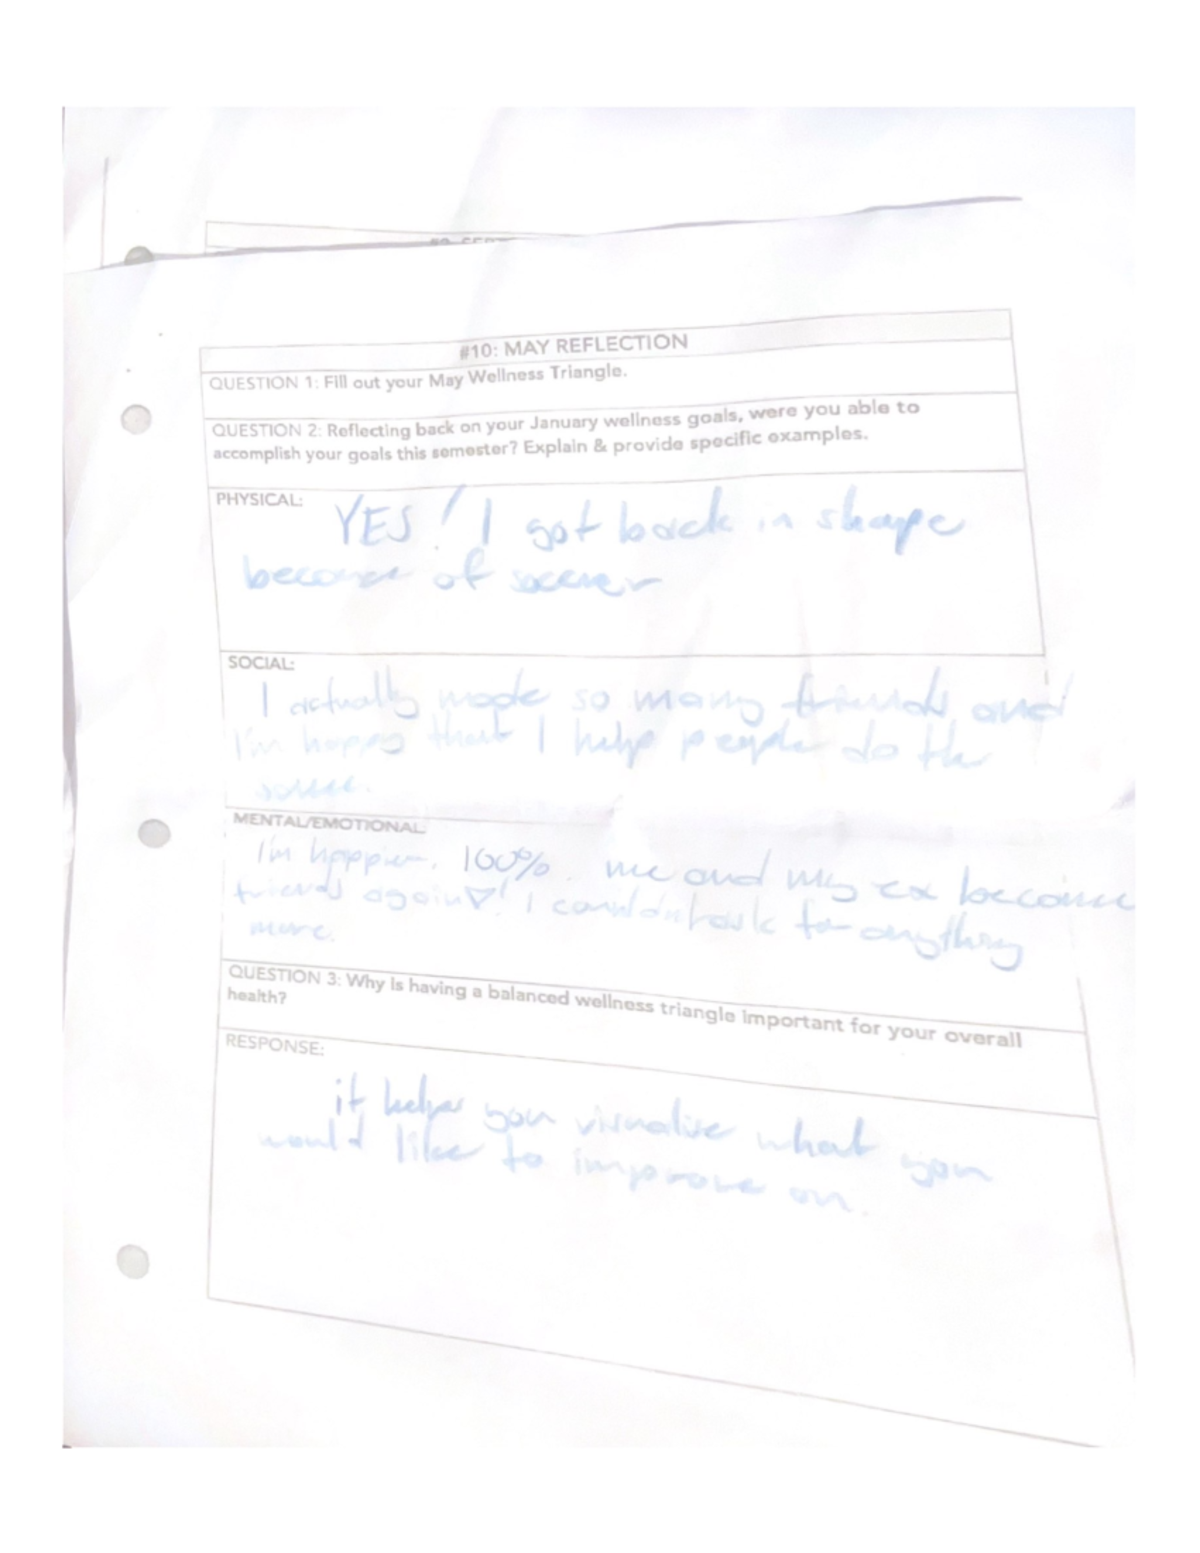 #10: MAY REFLECTION
QUESTION 1: Fill out your May Wellness Triangle.
QUESTION 2: Reflecting back on your January wellness goals, were you able to
accomplish your goals this semester? Explain & provide specific examples.
PHYSICAL:
YES! I got back in shape
because of soccer
SOCIAL:
I actually made so many friends and
I'm happy that I help people do the
same.
MENTAL/EMOTIONAL
I'm happier. 100%. me and my ex become
friends again♡! I couldn't ask for anything
more.
QUESTION 3: Why is having a balanced wellness triangle important for your overall
health?
RESPONSE:
it helps you visualise what you
would like to improve on.